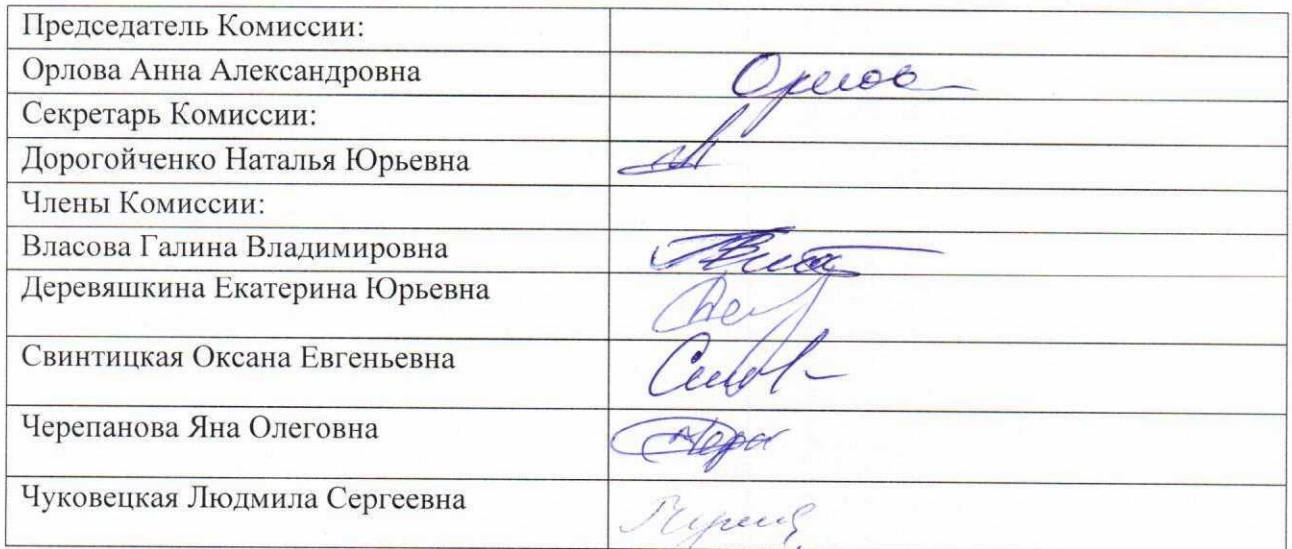 Председатель Комиссии:
Орлова Анна Александровна
Секретарь Комиссии:
Дорогойченко Наталья Юрьевна
Члены Комиссии:
Власова Галина Владимировна
Деревяшкина Екатерина Юрьевна
Свинтицкая Оксана Евгеньевна
Черепанова Яна Олеговна
Чуковецкая Людмила Сергеевна